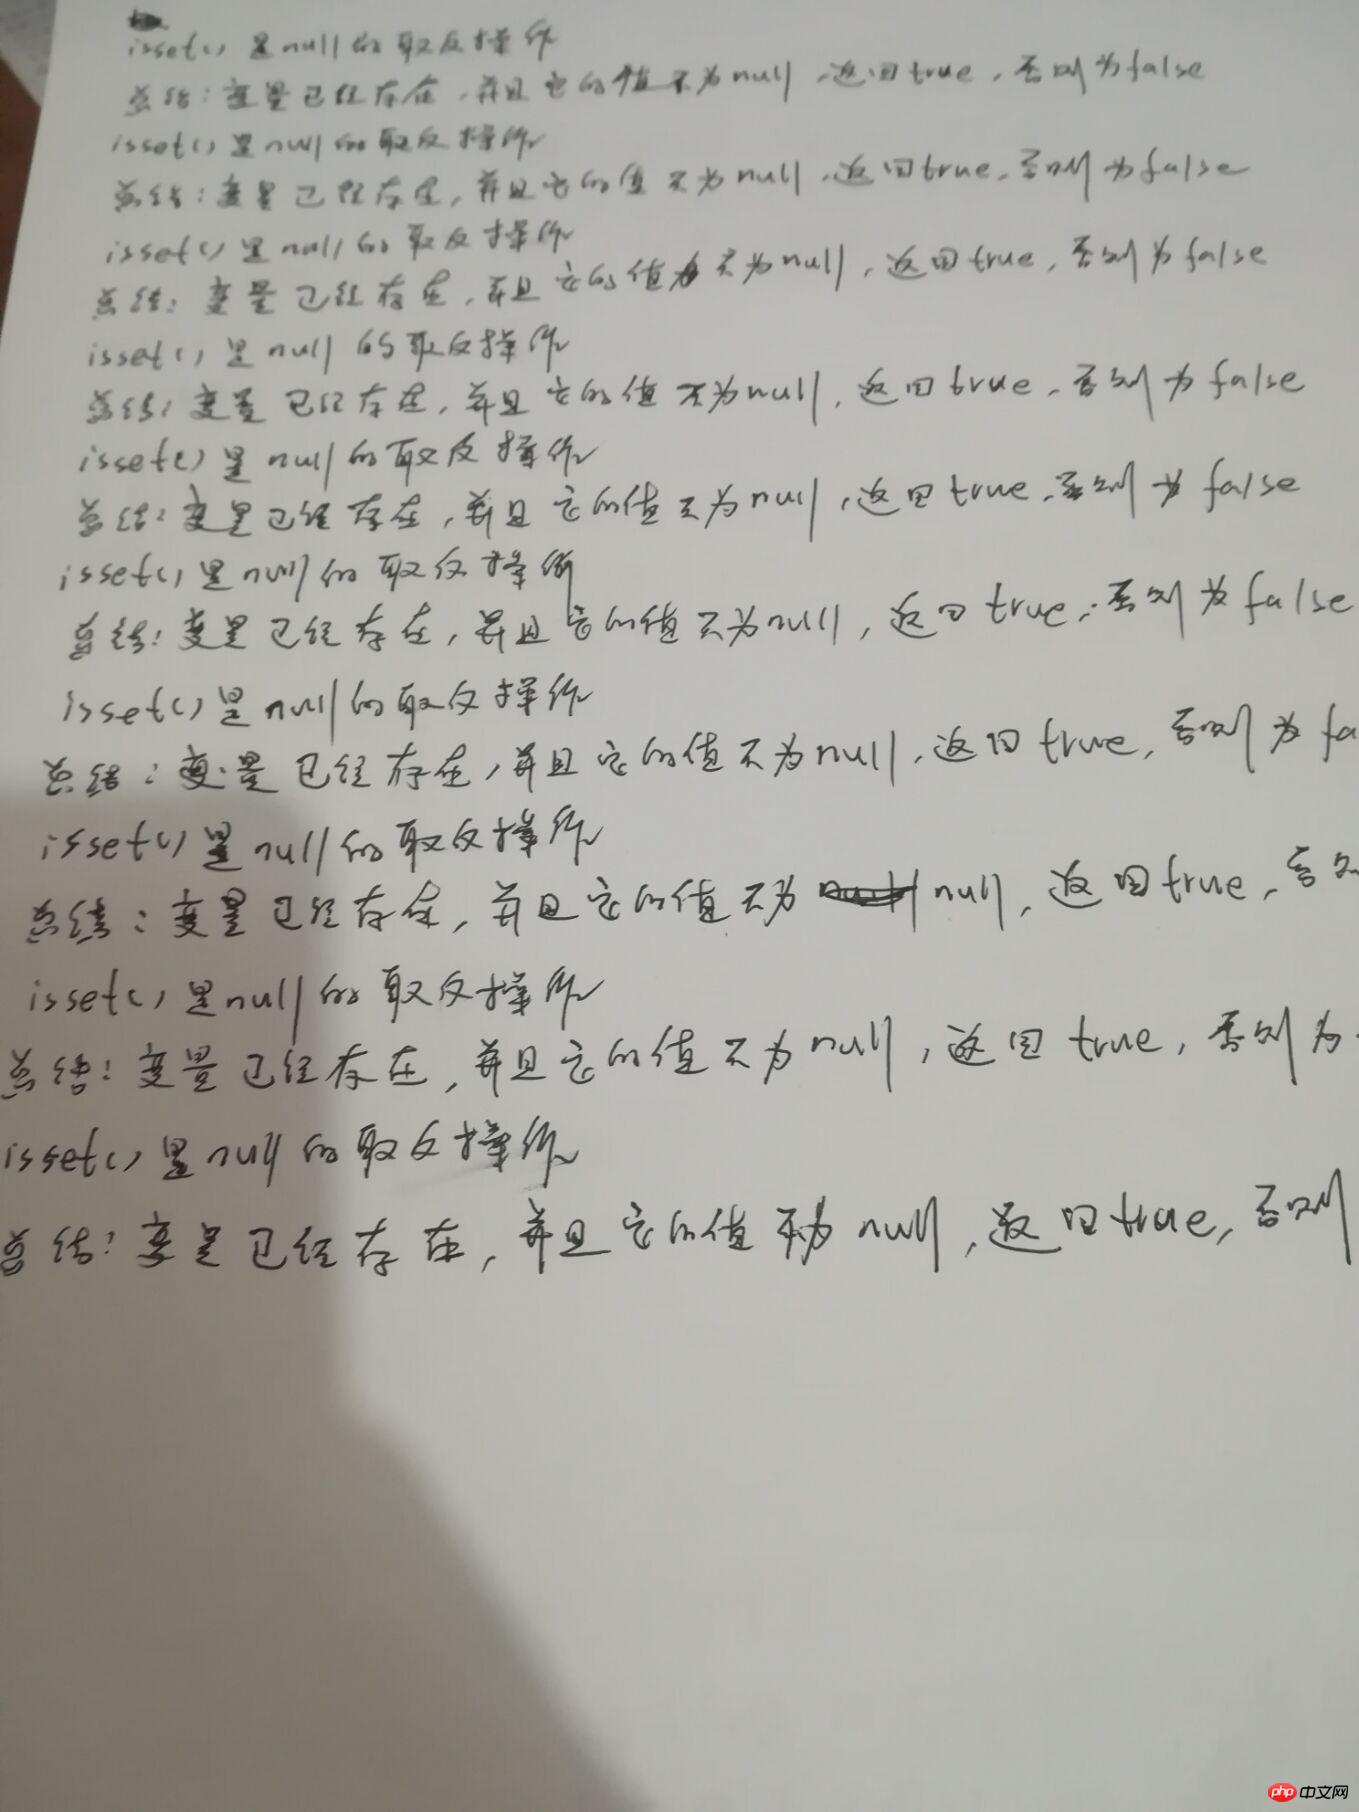 isset()是null的取反操作
总结:变量已经存在,并且它的值不为null,返回true,否则为false
isset()是null的取反操作
总结:变量已经存在,并且它的值不为null,返回true,否则为false
isset()是null的取反操作
总结:变量已经存在,并且它的值不为null,返回true,否则为false
isset()是null的取反操作
总结:变量已经存在,并且它的值不为null,返回true,否则为false
isset()是null的取反操作
总结:变量已经存在,并且它的值不为null,返回true,否则为false
isset()是null的取反操作
总结:变量已经存在,并且它的值不为null,返回true,否则为false
isset()是null的取反操作
总结:变量已经存在,并且它的值不为null,返回true,否则为fa
isset()是null的取反操作
总结:变量已经存在,并且它的值不为null,返回true,否则
isset()是null的取反操作
总结:变量已经存在,并且它的值不为null,返回true,否则为
isset()是null的取反操作
总结:变量已经存在,并且它的值不为null,返回true,否则
php中文网